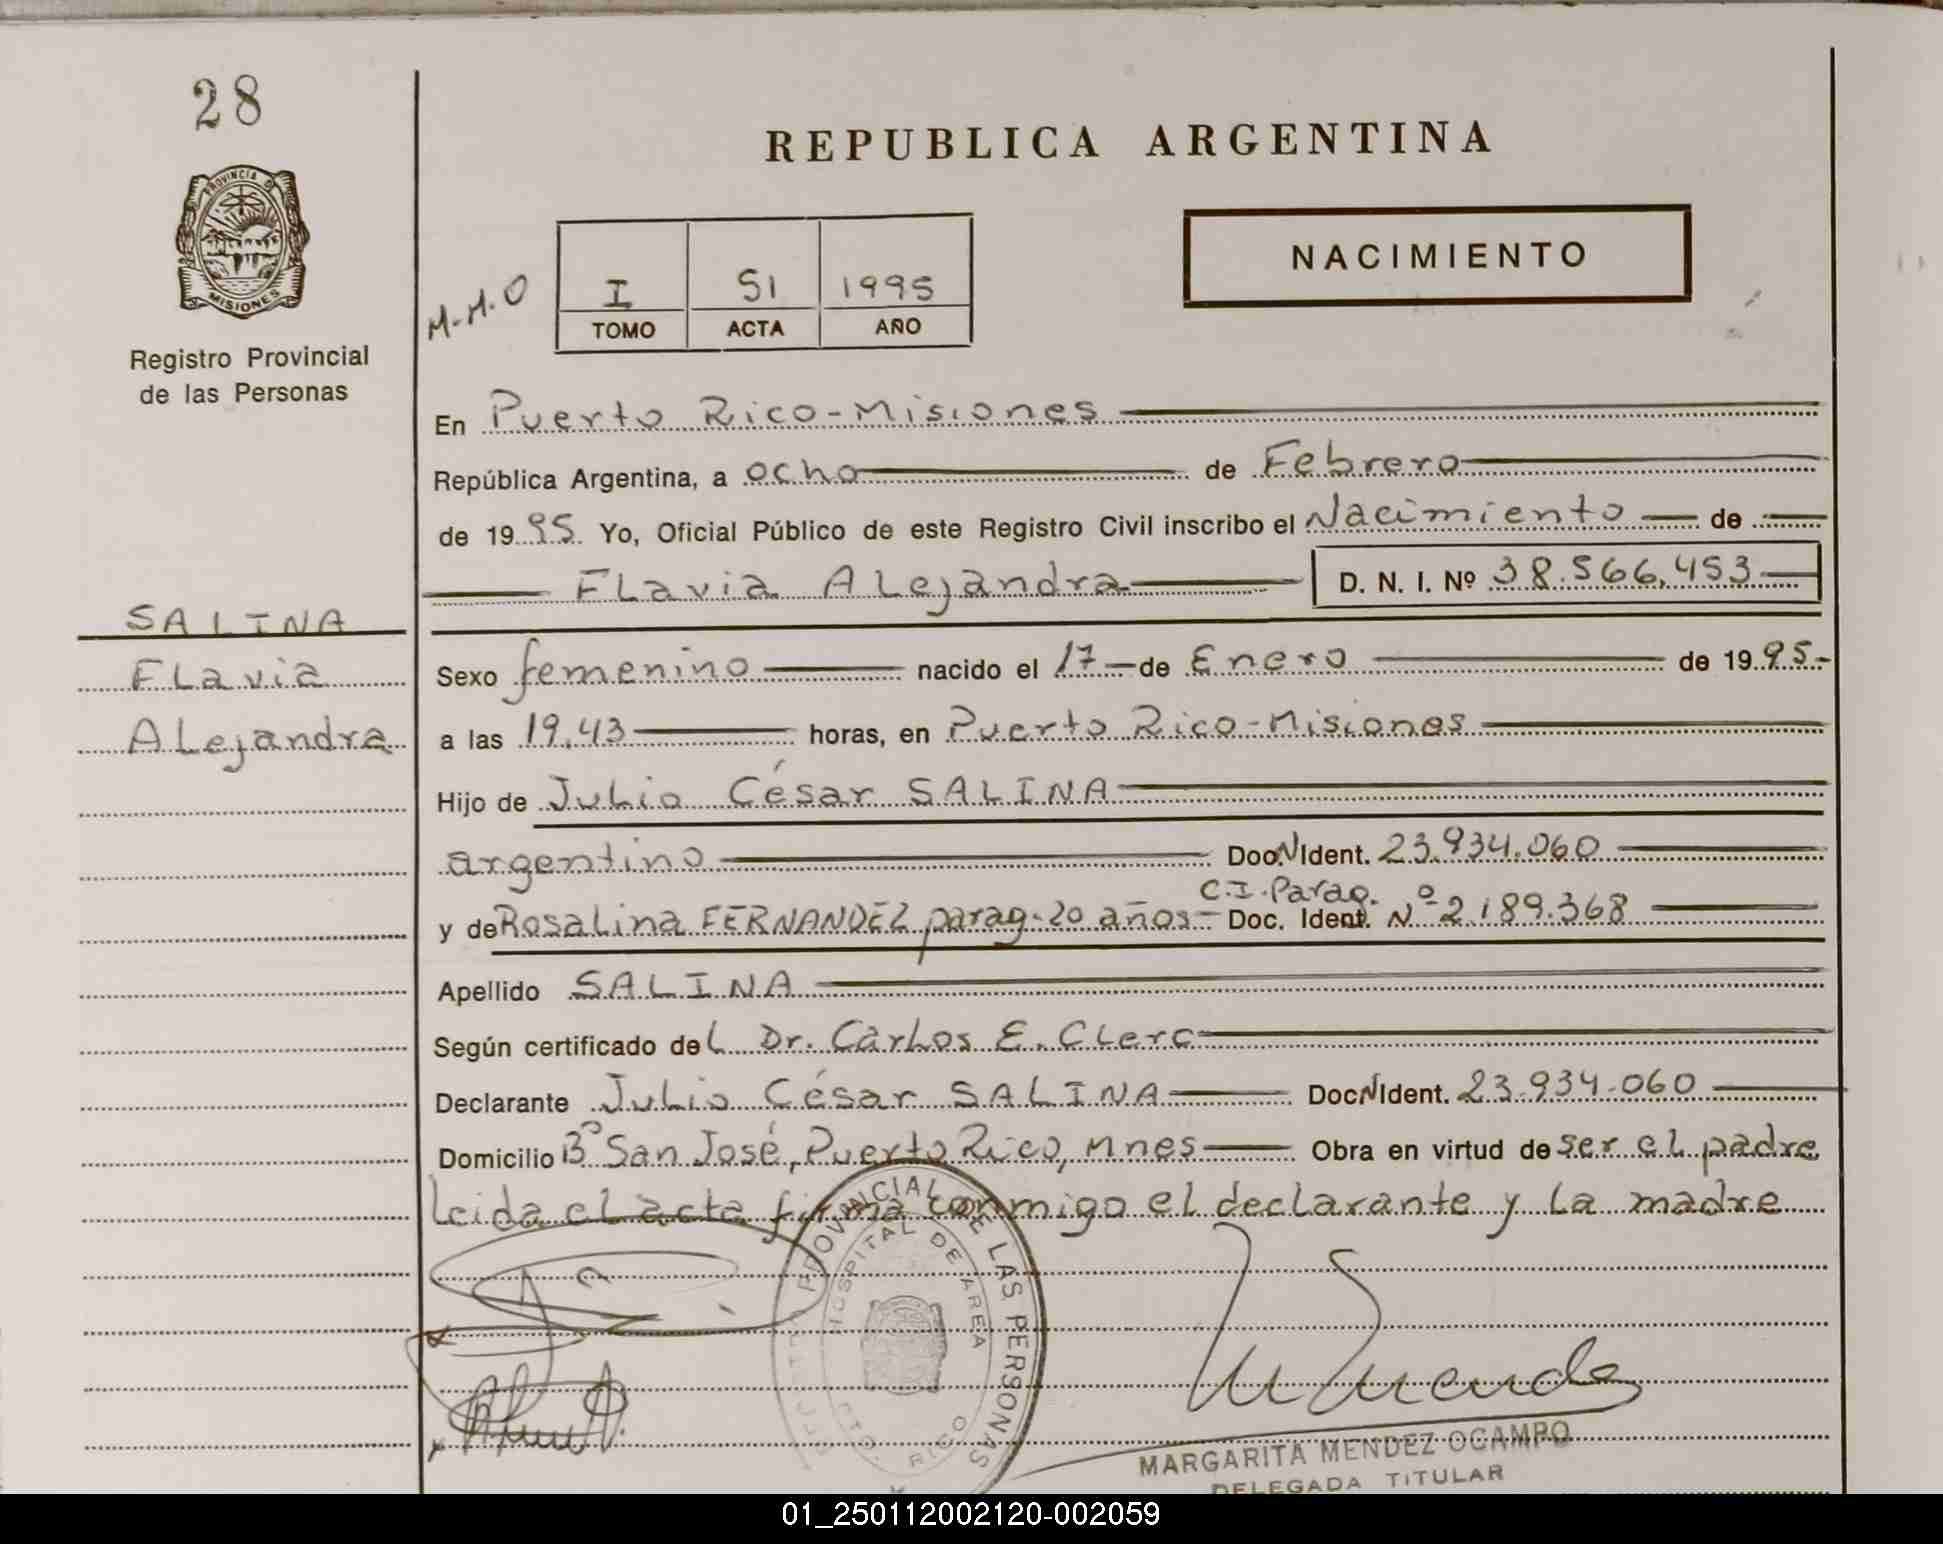 28
REPUBLICA ARGENTINA
PROVINCIA DE
MISIONES
Registro Provincial
de las Personas
NACIMIENTO
M.M.O
I 51 1995
TOMO ACTA AÑO
En Puerto Rico-Misiones
República Argentina, a ocho de Febrero
de 1995 Yo, Oficial Público de este Registro Civil inscribo el Nacimiento de
FLavia ALejandra D. N. I. Nº 38.566.453
SALINA
FLavia
ALejandra
Sexo femenino nacido el 17 de Enero de 1995.-
a las 19,43 horas, en Puerto Rico-Misiones
Hijo de Julio César SALINA
argentino Doc. N Ident. 23.934.060
C.I. Parag.
y de Rosalina FERNANDEZ parag. 20 años Doc. Ident. Nº 2.189.368
Apellido SALINA
Según certificado del Dr. CarLos E. CLerc
Declarante Julio César SALINA Doc N Ident. 23.934.060
Domicilio Bº San José, Puerto Rico, Mnes Obra en virtud de ser el padre
Leida el acta firma conmigo el declarante y La madre
PROVINCIAL DE LAS PERSONAS
HOSPITAL DE AREA
PTO. RICO
MARGARITA MENDEZ OCAMPO
DELEGADA TITULAR
01_250112002120-002059